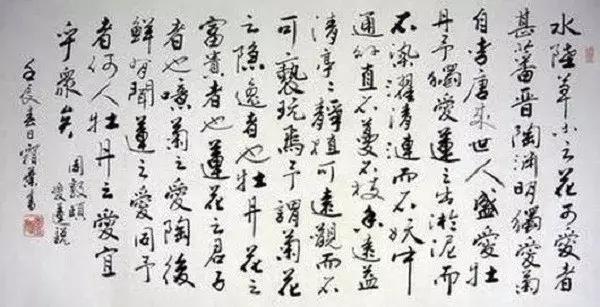 水陸草木之花可愛者
甚蕃晋陶渊明獨愛菊
自李唐来世人盛愛牡
丹予獨愛蓮之出淤泥而
不染濯清漣而不妖中
通外直不蔓不枝香遠益
清亭〻靜植可遠觀而不
可褻玩焉予謂菊花
之隐逸者也牡丹花之
富貴者也蓮花之君子
者也噫菊之愛陶後
鮮有聞蓮之愛同予
者何人牡丹之愛宜
乎衆矣
周敦頤
愛蓮說
壬辰春日
書